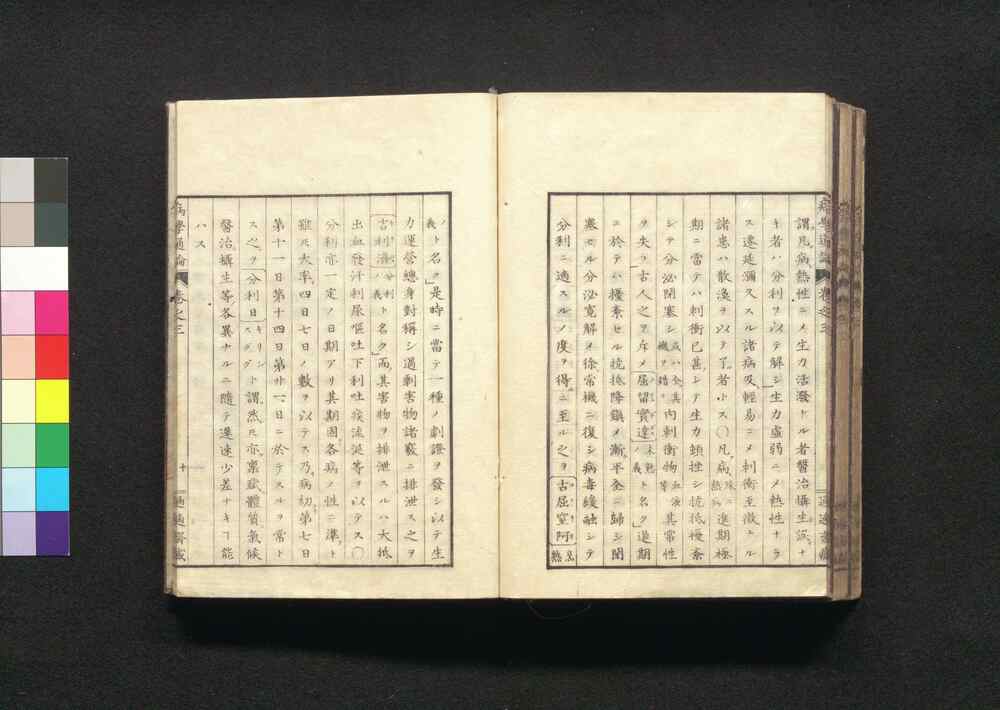 謂凡病熱性ニメ生力活潑ナル者醫治攝生誤ナ
キ者ハ分利ヲ以テ解シ生力虛弱ニメ熱性ナラ
ス遷延瀰久スル諸病及輕易ニメ刺衝至微ナル
諸患ハ散渙ヲ以テ了ル者トス〇凡病殊ニ熱病進期極
期ニ當テハ刺衝已甚シテ生力頓挫シ抗抵慢紊
シテ分泌閉塞シ或ハ全其機ヲ錯リ其内刺衝物血液等其常性
ヲ失フ古人之ヲ斥メ屈留實達未熟ノ義ト名ク進期
ニ於テハ擾亂セル抗抵降鎮メ漸平全ニ歸シ閉
塞セル分泌寛解メ徐常機ニ復シ病毒緩融シテ
分利ニ適スルノ度ヲ得ルニ至ル之ヲ古屈窒阿熟
病學通論 卷之三
ノ義ト名ク是時ニ當テ一種ノ劇證ヲ發シ以テ生
力運營總身對稱シ過剩害物諸竅ニ排泄ス之ヲ
吉利濟分利ノ義ト名ク而其害物ヲ排泄スルハ大抵
出血發汗利尿嘔吐下利吐痰流涎等ヲ以テス〇
分利亦一定ノ日期アリ其期固各病ノ性ニ準ト
雖𪜈大率四日七日ノ數ヲ以テス乃病初第七日
第十一日第十四日第廿一日ニ於テスルヲ常ト
ス之ヲ分利日キリシスダグント謂然𪜈亦稟賦體質氣候
醫治攝生等各異ナルニ隨テ遲速少差ナキヿ能
ハス
病學通論 卷之三 十